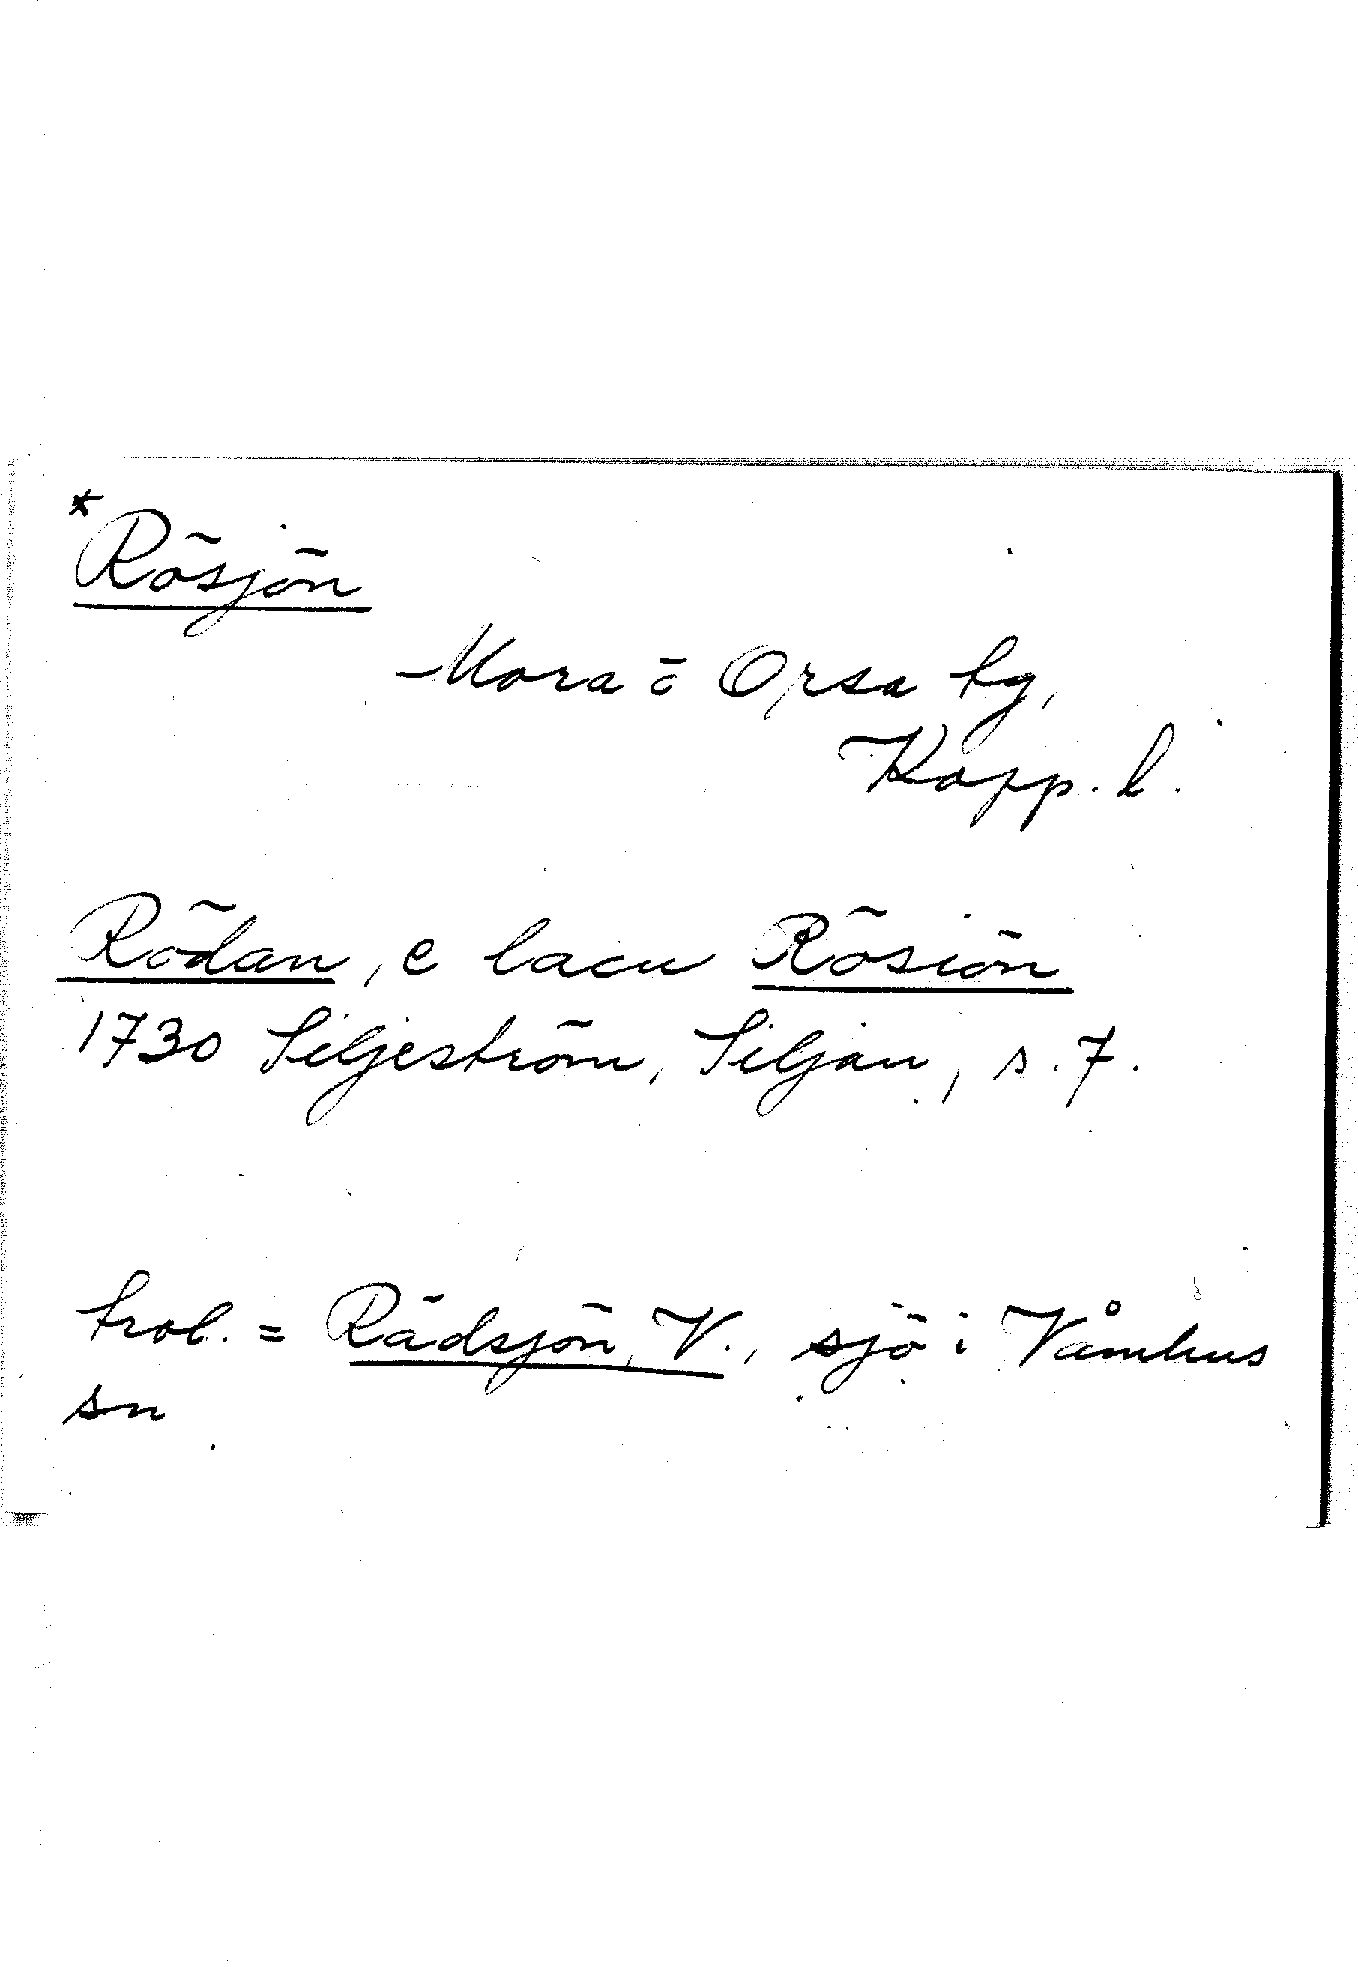 *
Rösjön
Mora o Orsa tg,
Kopp. l.
Rödan, e lacu Rösiön
1730 Siljeström, Siljan, s. 7.
trol. = Rädsjön, V., sjö i Våmhus
sn